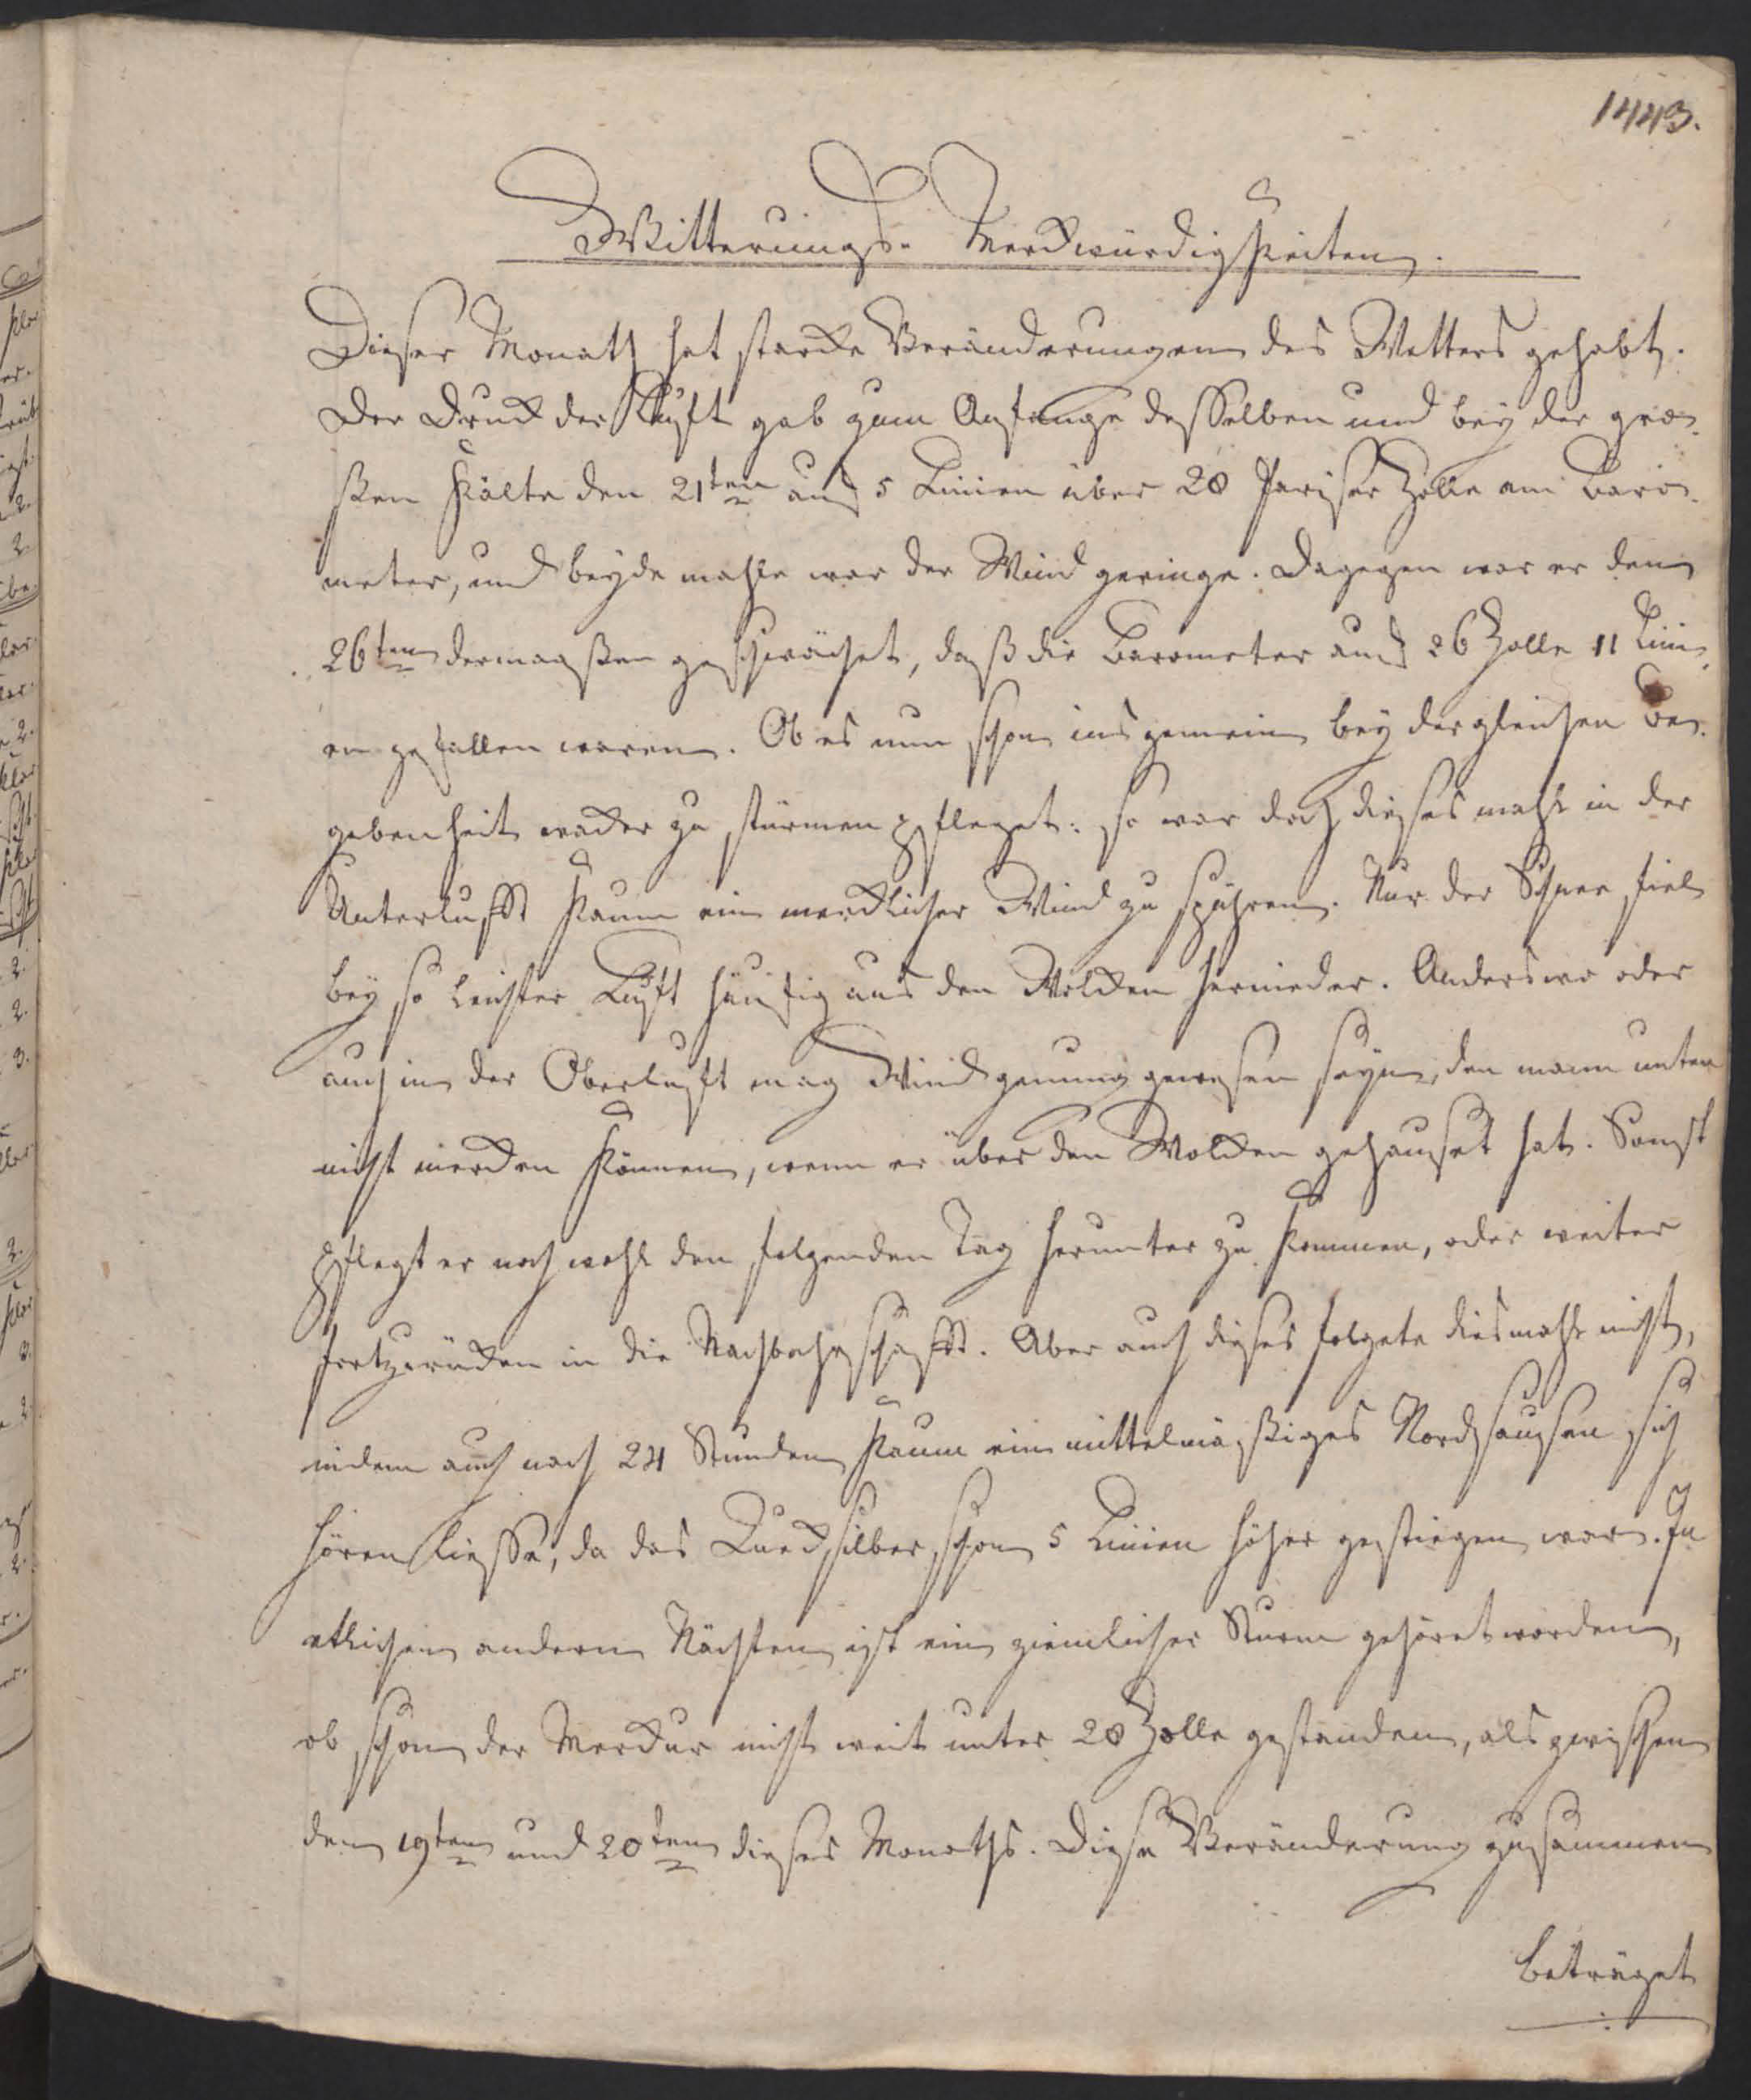 1443.
Witterungs-Merckwürdigkeiten.
Dieser Monath hat starcke Veränderungen des Wetters gehabt.
Der Druck der Lufft gab zum Anfange desselben und bey der gro-
ßen Kälte den 21ten auch 5 Linien über 28 Pariser Zolle am Baro-
meter, und beyde mahle war der Wind geringe. Dagegen war er den
26ten dermaaßen geschwächet, daß die Barometer auch 26 Zolle 11 Lini-
en gefallen waren. Ob es nun schon ins gemein bey dergleichen Be-
gebenheit wacker zu stürmen pfleget: so war doch dieses mahl in der
Unterlufft kaum ein mercklicher Wind zu spühren. Nur der Schnee fiel
bey so leichter Lufft häufig aus den Wolcken hernieder. Anderswo oder
auch in der Oberlufft mag Wind genung gewesen seyn, den mann unten
nicht mercken können, wenn er über den Wolcken gehauset hat. Sonst
pflegt er noch wohl den folgenden Tag herunter zu kommen, oder weiter
fortzurücken in die Nachbahrschafft. Aber auch dieses folgete diesmahl nicht,
indem auch nach 24 Stunden kaum ein mittelmäßiges Nordsausen sich
hören liesse, da das Quecksilber schon 5 Linien höher gestiegen war. In
etlichen andern Nächten ist ein ziemlicher Sturm gehöret worden,
ob schon der Mercur nicht weit unter 28 Zolle gestanden, als zwischen
dem 19ten und 20ten dieses Monaths. Diese Veränderung zusammen
beträget